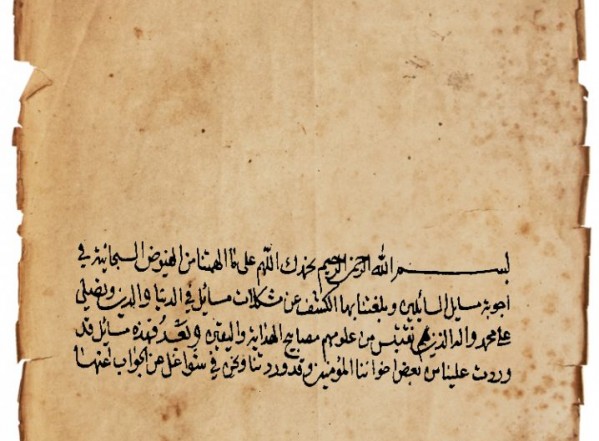 بســـم الله الرحمن الرحيم نحمدك اللهم على ما الهمتنا من الفيوض السبحانية في
اجوبة مسايل السايلين وبلغتنا بها الكشف عن مشكلات مسايل في الدنيا والدين ونصلي
على محمد واله الذين نقتبس من علومهم مصابيح الهداية واليقين وبعد فهذه مسايل قد
وردت علينا من بعض اخواننا المؤمنين وقد وردتنا ونحن في شواغل عن الجواب عنها